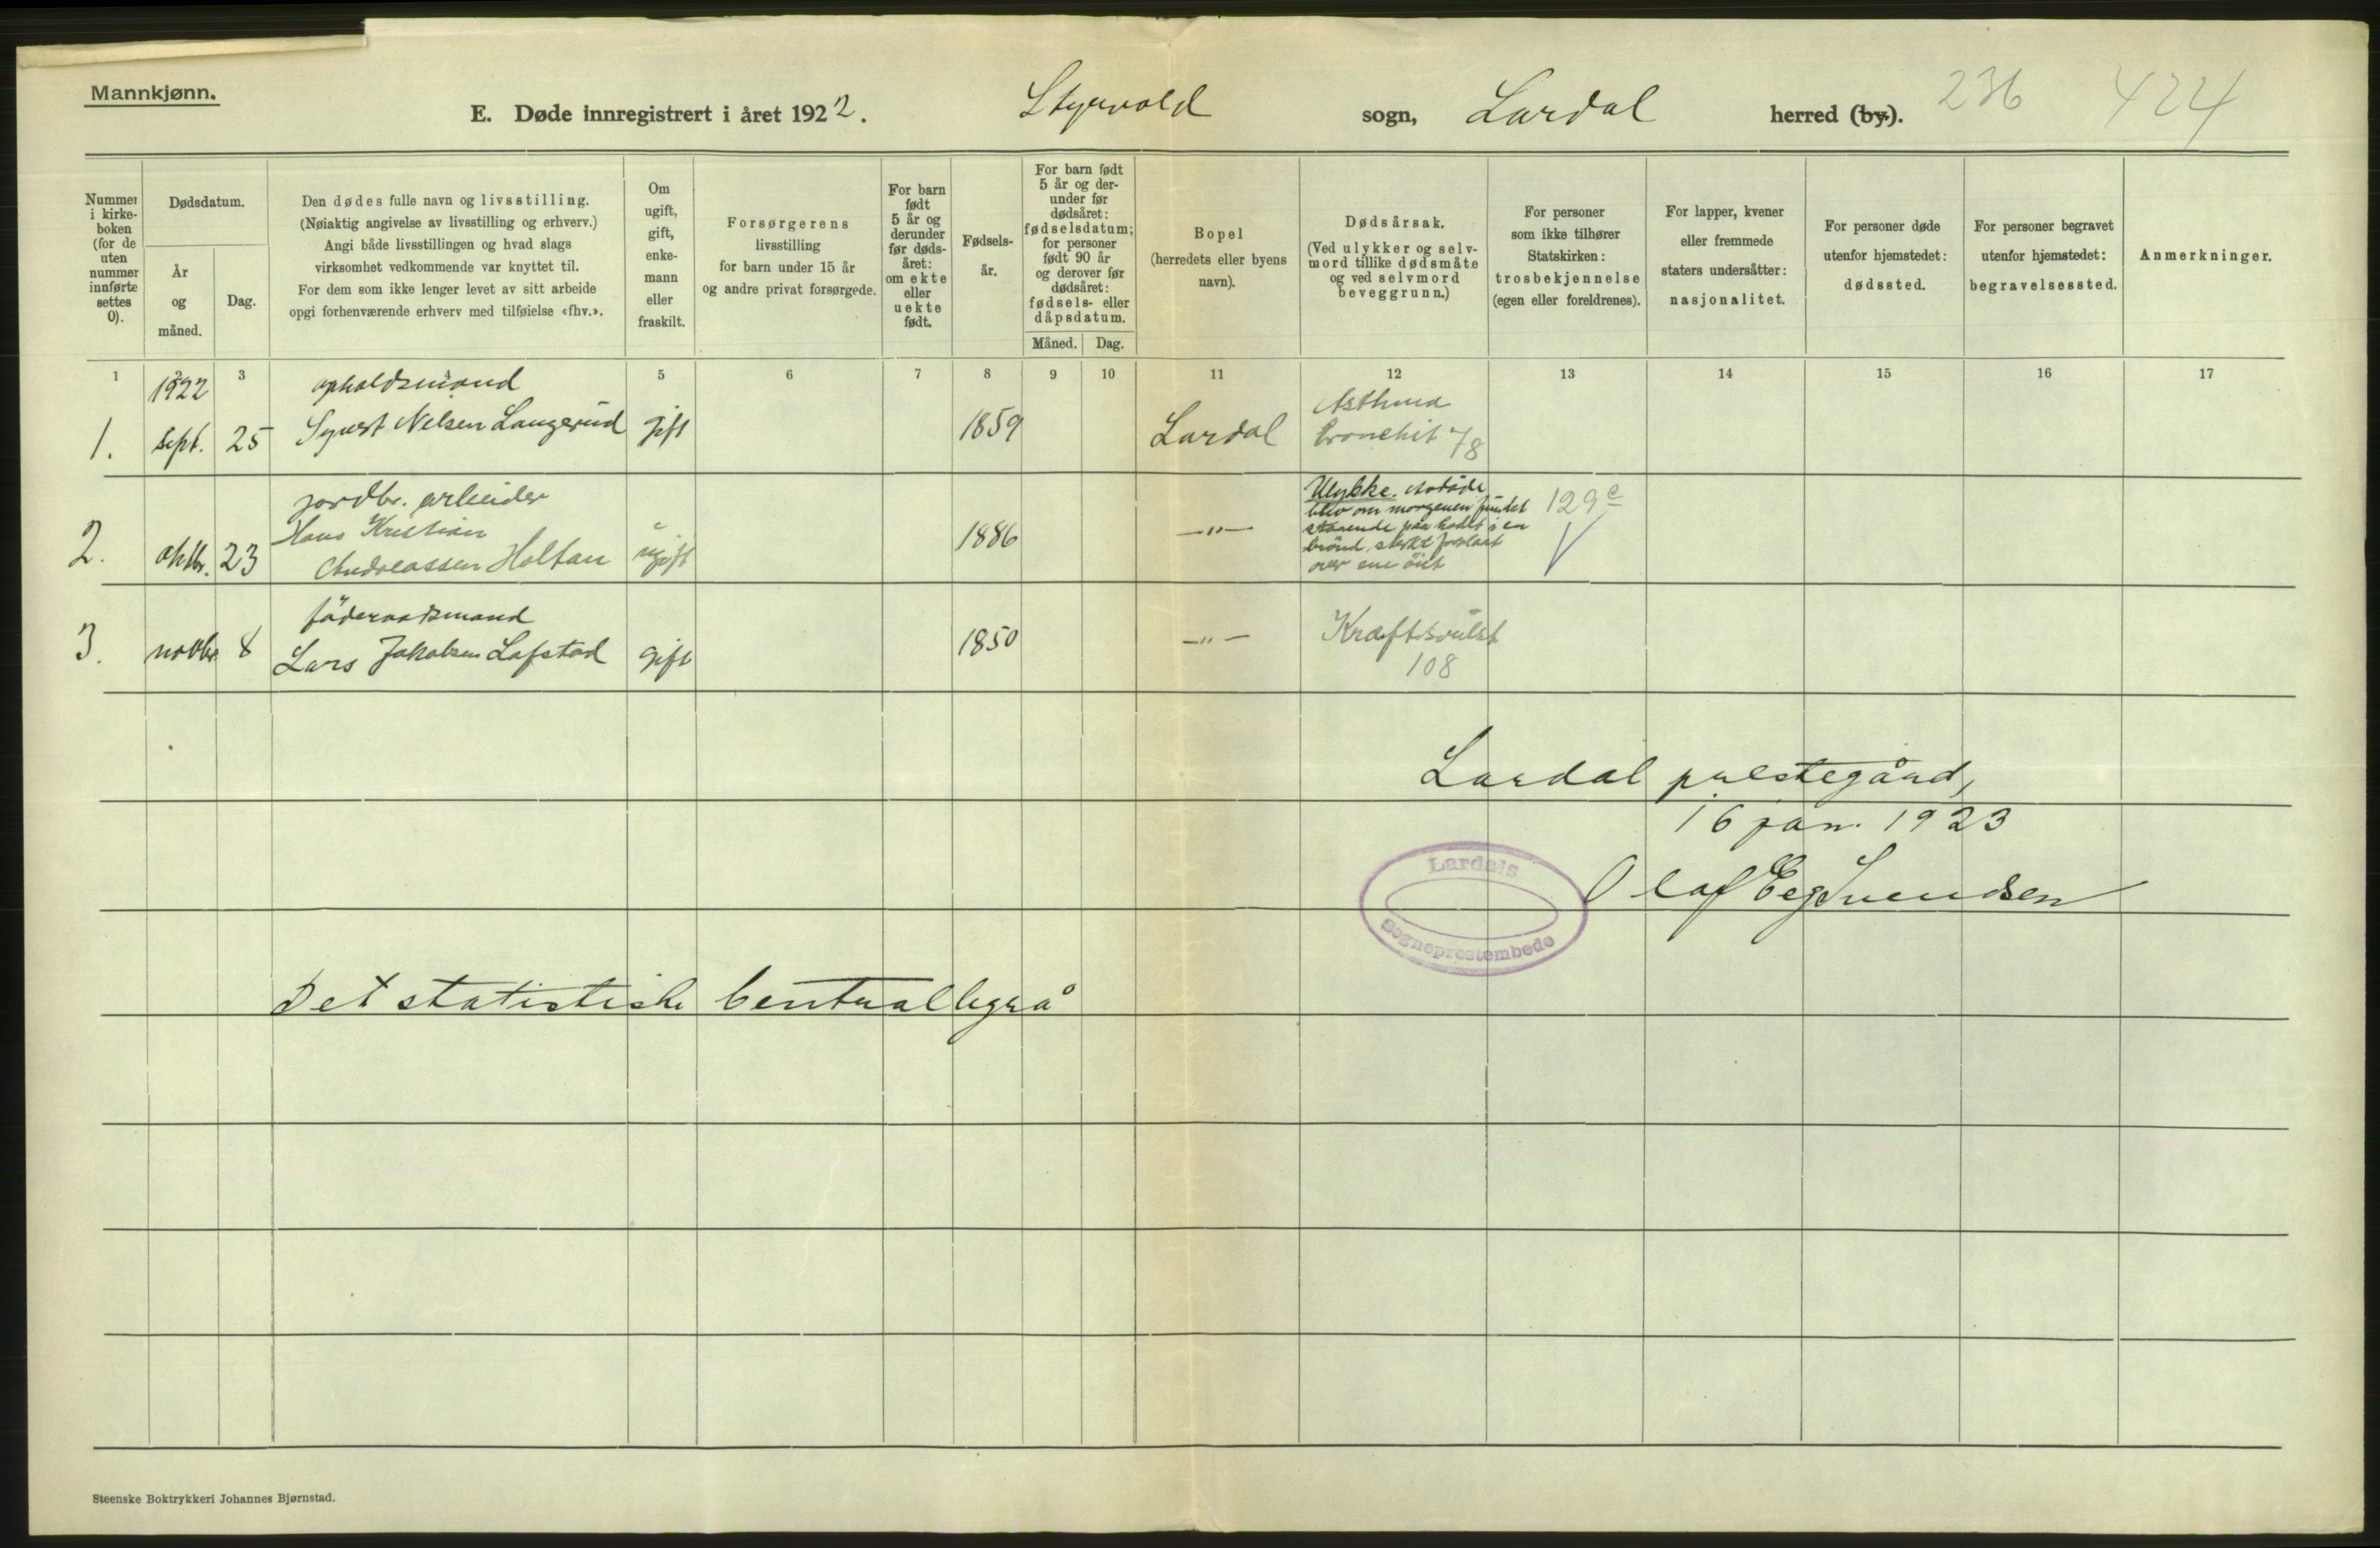 Mannkjønn.
E. Døde innregistrert i året 1922. Styrvold sogn, Lardal herred (by). 236 424
Nummer
i kirke-
boken
(for de
uten
nummer
innførte
settes
0).
Dødsdatum.
År
og
måned.
Dag.
Den dødes fulle navn og livsstilling.
(Nøiaktig angivelse av livsstilling og erhverv.)
Angi både livsstillingen og hvad slags
virksomhet vedkommende var knyttet til.
For dem som ikke lenger levet av sitt arbeide
opgi forhenværende erhverv med tilføielse «fhv.».
Om
ugift,
gift,
enke-
mann
eller
fraskilt.
Forsørgerens
livsstilling
for barn under 15 år
og andre privat forsørgede.
For barn
født
5 år og
derunder
før døds-
året:
om ekte
eller
uekte
født.
Fødsels-
år.
For barn født
5 år og der-
under før
dødsåret:
fødselsdatum;
for personer
født 90 år
og derover før
dødsåret:
fødsels- eller
dåpsdatum.
Måned. Dag.
Bopel
(herredets eller byens
navn).
Dødsårsak.
(Ved ulykker og selv-
mord tillike dødsmåte
og ved selvmord
beveggrunn.)
For personer
som ikke tilhører
Statskirken:
trosbekjennelse
(egen eller foreldrenes).
For lapper, kvener
eller fremmede
staters undersåtter:
nasjonalitet.
For personer døde
utenfor hjemstedet:
dødssted.
For personer begravet
utenfor hjemstedet:
begravelsessted.
Anmerkninger.
1 2 3 4 5 6 7 8 9 10 11 12 13 14 15 16 17
1922 opholdsmand Asthma
1. sept. 25 Syvert Nelsen Langerud gift 1859 Lardal bronchit 78
jordbr. arbeider
Hans Kristian
2. oktbr. 23 Andreassen Holtan ugift 1886 -"-
Ulykke. Avdöde
blev om morgenen fundet
staaende paa hodet i en
brönd, sterkt forslaat
over ene öiet
129 c
V
föderaadsmand
3. novbr. 8 Lars Jakobsen Lofstad gift 1850 -"- Kræftsvulst
108
Lardal prestegård,
16 jan. 1923
Olaf Eeg Svendsen
Lardals
Sogneprestembede
Det statistiske Centralbyrå
Steenske Boktrykkeri Johannes Bjørnstad.